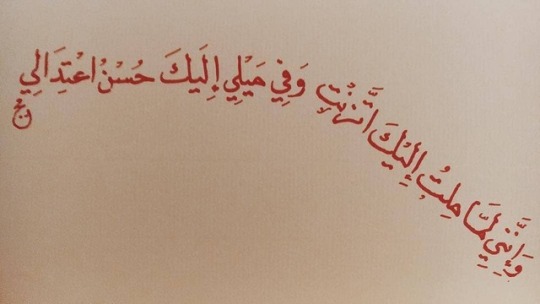 وَإِنَّنِي لَمَّا مِلتُ إِلَيْكَ اتَّزَنْتُ وَفِي مَيْلِي إِلَيكَ حُسْنُ اعْتِدَالِي